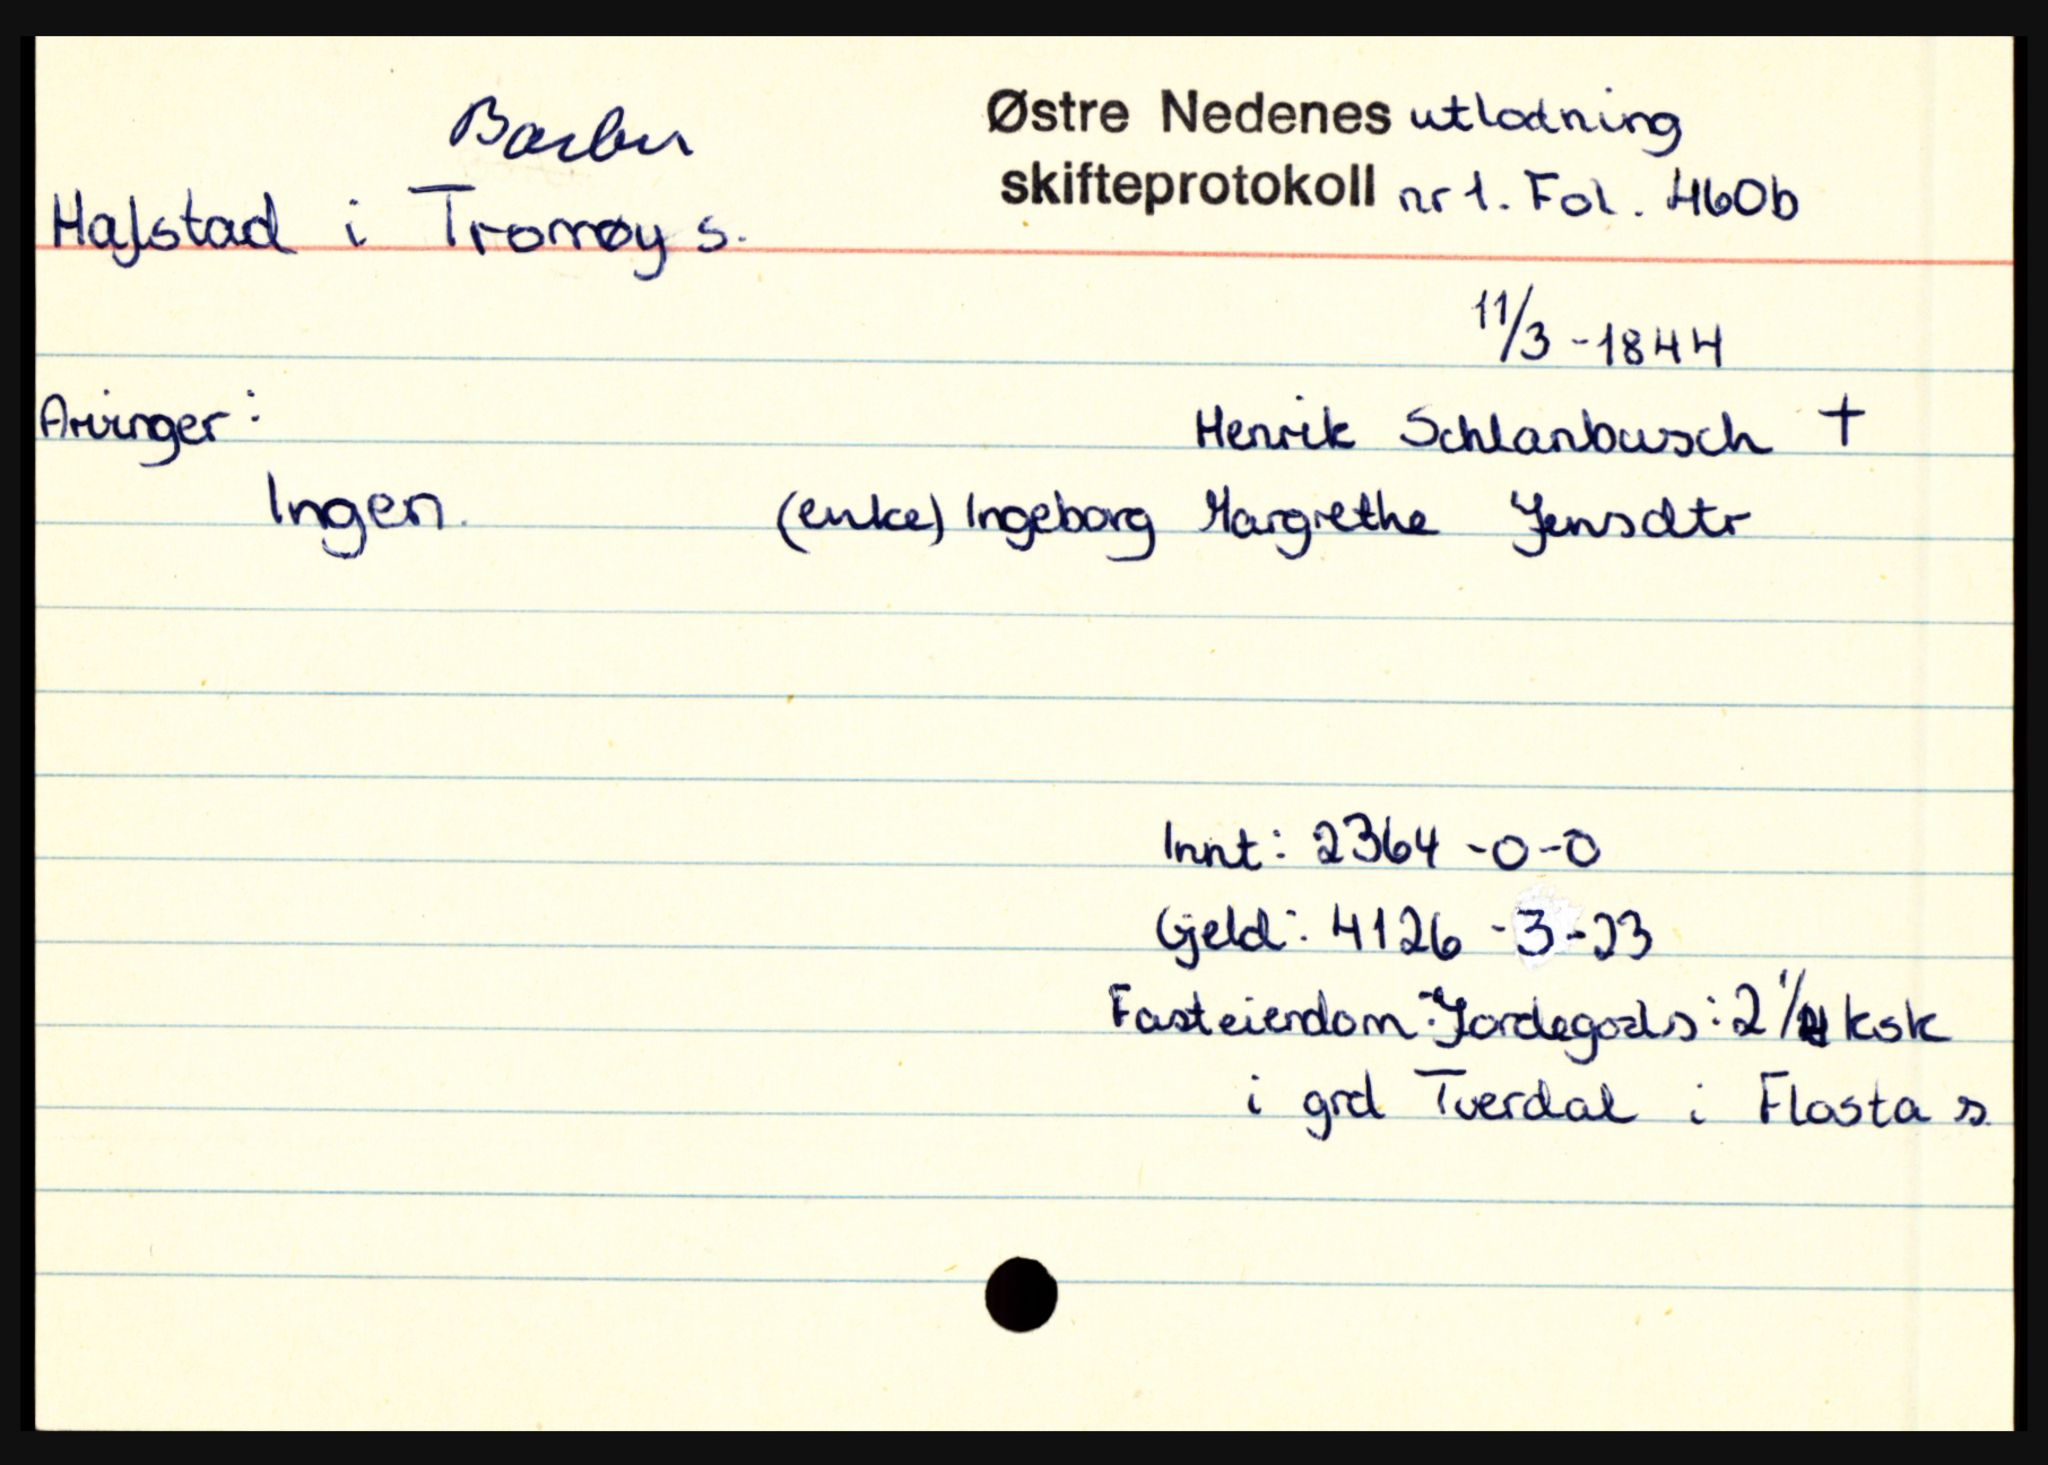 Barbu
Østre Nedenes utlodning
skifteprotokoll nr 1. Fol. 460b
Hafstad i Tromøy s.
11/3 - 1844
Arvinger:
Henrik Schlanbusch †
Ingen.
(enke) Ingeborg Margrethe Jensdtr
Innt: 2364 - 0 - 0
Gjeld: 4126 - 3 - 23
Fasteiendom: Jordegods: 2 1/4 ksk
i grd Tverdal i Flosta s.